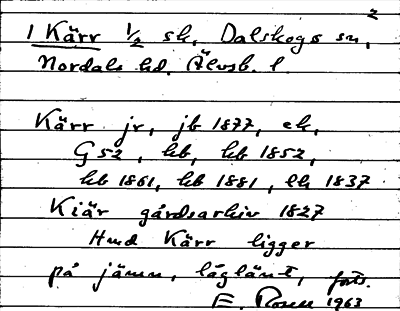 2
1 Kärr ½ sk, Dalskogs sn,
Nordals hd. Älvsb. l.
Kärr jr, jb 1877, ek,
G 52, kb, hb 1852,
kb 1861, kb 1881, lk 1837
Kiär gårdsarkiv 1827
Hmd Kärr ligger
på jämn, låglänt, forts.
E. Rosell 1963